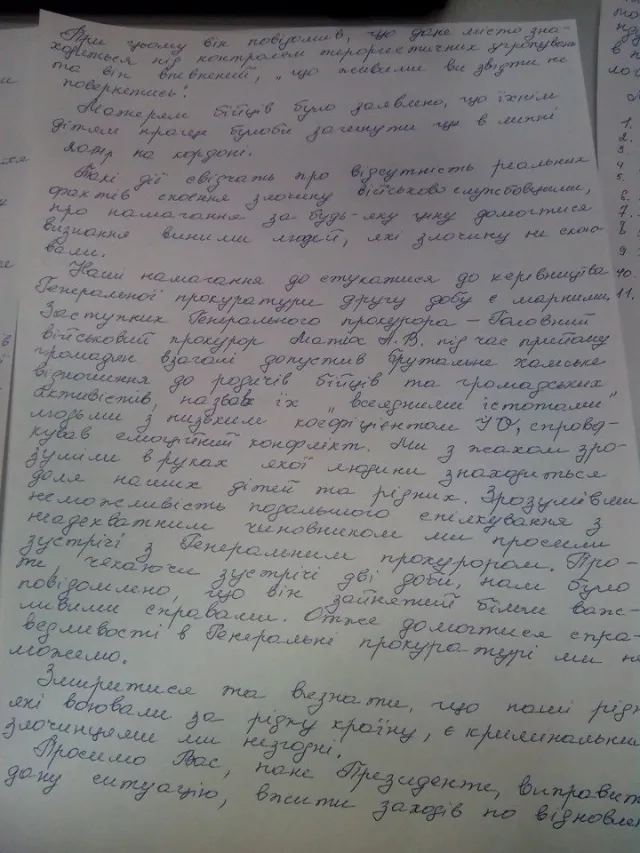 При цьому він повідомив, що дане місто зна-
ходиться під контролем терористичних угрупувань
та він впевнений, „що живими ви звідти не
повернетись!
Матерям бійців було заявлено, що їхнім
дітям краще було би загинути ще в липні
на кордоні.
Такі дії свідчать про відсутність реальних
фактів скоєння злочину військовослужбовцями,
про намагання за будь-яку ціну домогтися
визнання винними людей, які злочину не скою-
вали.
Наші намагання достукатися до керівництва
Генеральної прокуратури другу добу є марними.
Заступник Генерального прокурора – Головний
військовий прокурор Матіос А.В. під час прийому
громадян взагалі допустив брутальне хамське
відношення до родичів бійців та громадських
активістів, назвав їх „всеядними істотами"
людьми з низьким коефіцієнтом УО, спрово-
кував емоційний конфлікт. Ми з жахом зро-
зуміли в руках якої людини знаходиться
доля наших дітей та рідних. Зрозумівши
неможливість подальшого спілкування з
неадекватним чиновником ми просили
зустрічі з Генеральним прокурором. Про-
те, чекаючи зустрічі дві доби, нам було
повідомлено, що він зайнятий більш важ-
ливими справами. Отже домогтися спра-
ведливості в Генеральні прокуратурі ми не
можемо.
Змиритися та визнати, що наші рідні
які воювали за рідну країну, є кримінальними
злочинцями ми незгодні.
Просимо Вас, пане Президенте, виправити
дану ситуацію, вжити заходів по відновлен
1.
2.
3
4
5.
6.
7.
8
9
10.
11.